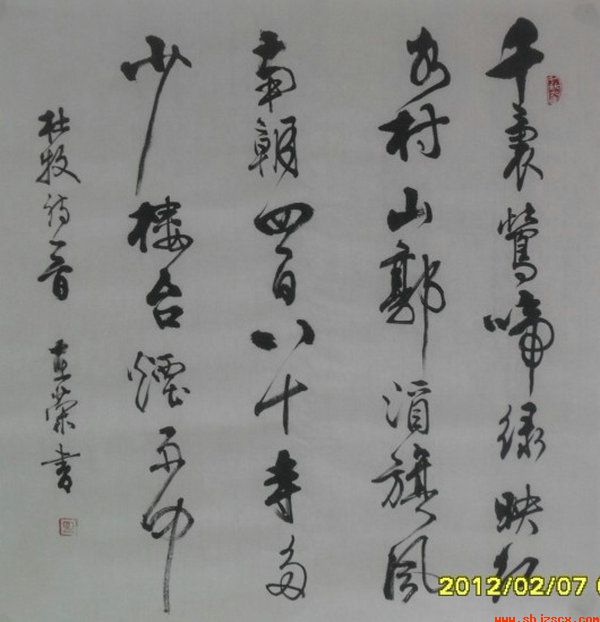 千裏鶯啼绿映红
水村山郭酒旗風
南朝四百八十寺多
少楼台煙雨中
杜牧诗一首 荣书
2012/02/07
www.shjzscx.